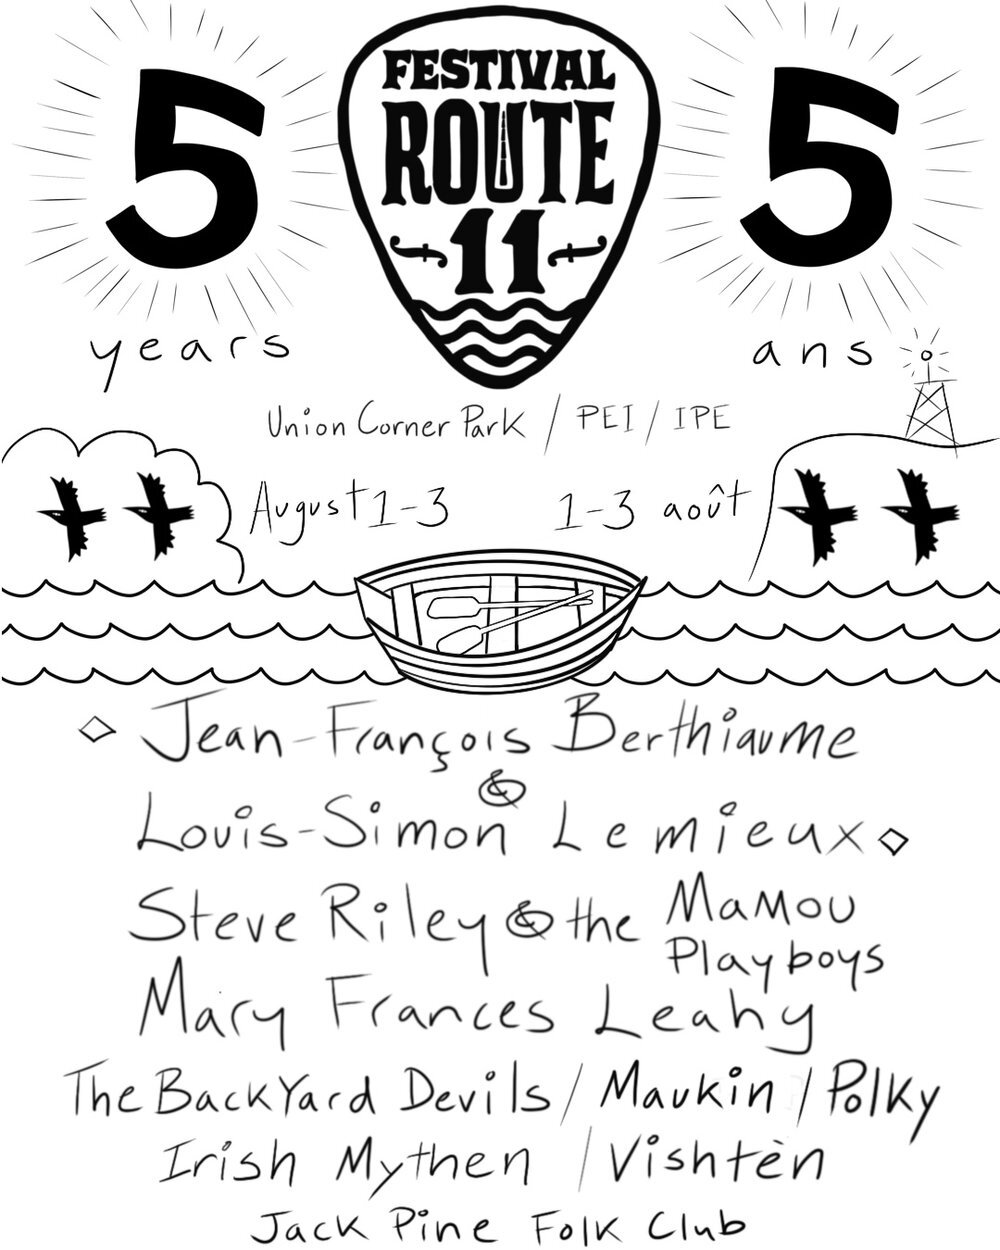 5
FESTIVAL
ROUTE
11
5
years
ans
Union Corner Park / PEI / IPE
August 1-3
1-3 août
Jean-François Berthiaume
&
Louis-Simon Lemieux
Steve Riley & the Mamou
Playboys
Mary Frances Leahy
The BackYard Devils / Maukin / Polky
Irish Mythen / Vishtèn
Jack Pine Folk Club